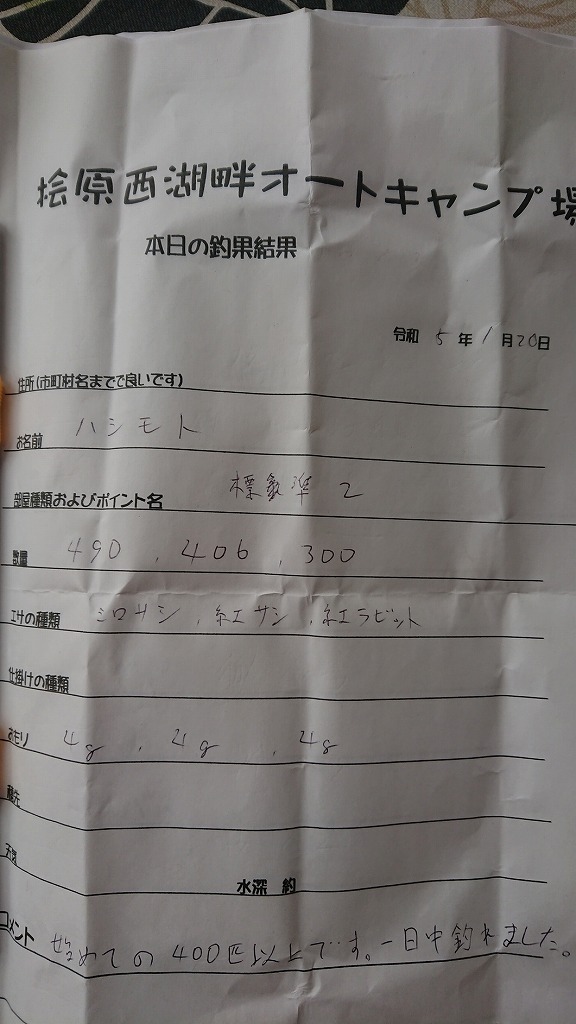 桧原西湖畔オートキャンプ場
本日の釣果結果
令和 5 年 1 月 20 日
住所(市町村名までで良いです)
お名前 ハシモト
部屋種類およびポイント名 標準 2
数量 490 , 406 , 300
エサの種類 シロサシ , 紅サシ , 紅ラビット
仕掛けの種類
おもり 4g , 4g , 4g
穂先
天気 水深 約
コメント 始めての400匹以上です。一日中釣れました。